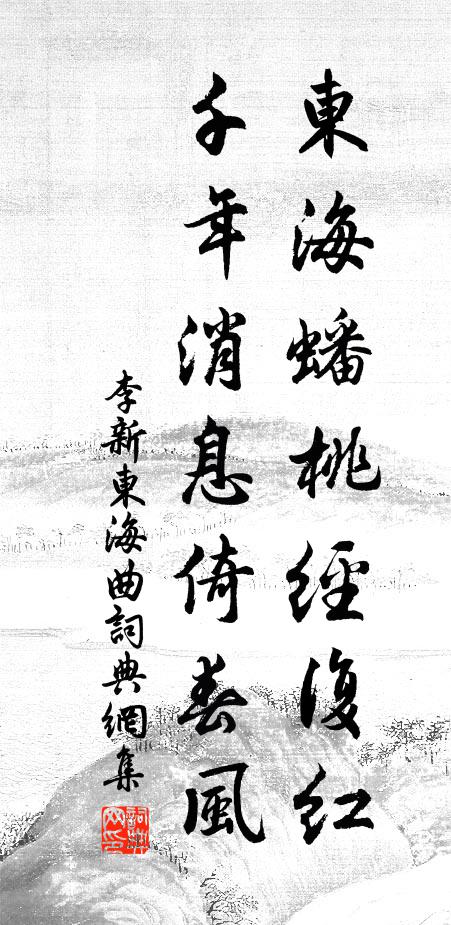 東海蟠桃經復紅
千年消息倚春風
李新東海曲詞典網集
詞典网印